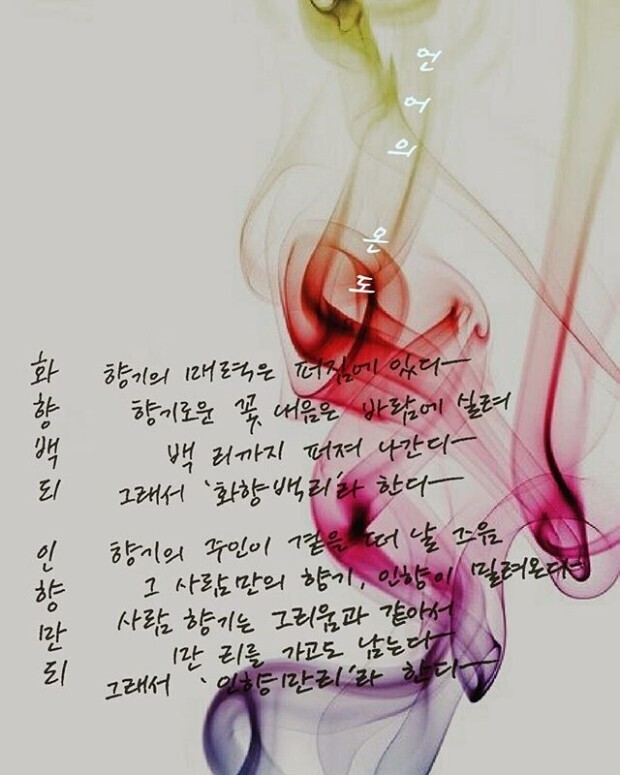 언어의 온도
화향백리
향기의 매력은 퍼짐에 있다
향기로운 꽃 내음은 바람에 실려
백 리까지 퍼져 나간다
그래서 '화향백리'라 한다
인향만리
향기의 주인이 곁을 떠날 즈음
그 사람만의 향기, 인향이 밀려온다
사람 향기는 그리움과 같아서
만 리를 가고도 남는다
그래서 '인향만리'라 한다